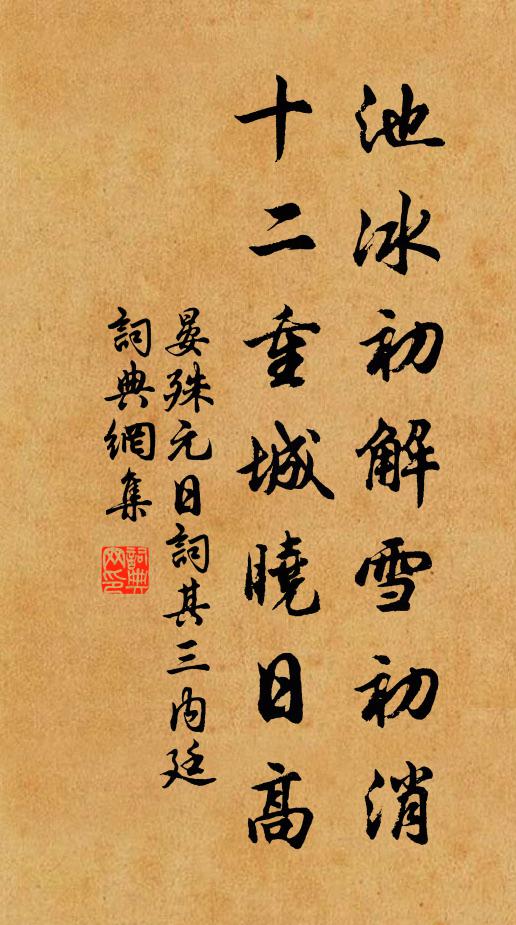 池冰初解雪初消
十二重城曉日高
晏殊元日詞其三內廷
詞典網集
詞典網印